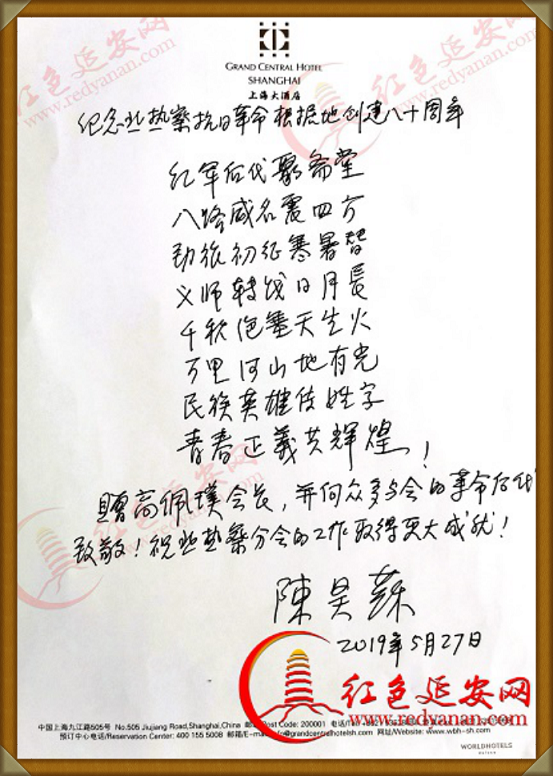 GRAND CENTRAL HOTEL
SHANGHAI
上海大酒店
纪念北热察抗日革命根据地创建八十周年
红军后代聚斋堂
八路威名震四方
劲旅初征寒暑智
义师转战日月長
千秋堡垒天生火
万里河山地有光
民族英雄传姓字
青春正義共辉煌!
贈高佩璞会长,并向众多与会的革命后代
致敬!祝北热察分会的工作取得更大成就!
陳昊蘇
2019年5月27日
红色延安网
www.redyanan.com
中国上海九江路505号 No.505 Jiujiang Road,Shanghai,China Post Code: 200001
预订中心电话/Reservation Center: 400 155 5008 邮箱/E-mail: info@grandcentralhotelsh.com 网站/Website: www.wbh-sh.com
WORLDHOTELS
红色延安网
www.redyanan.com